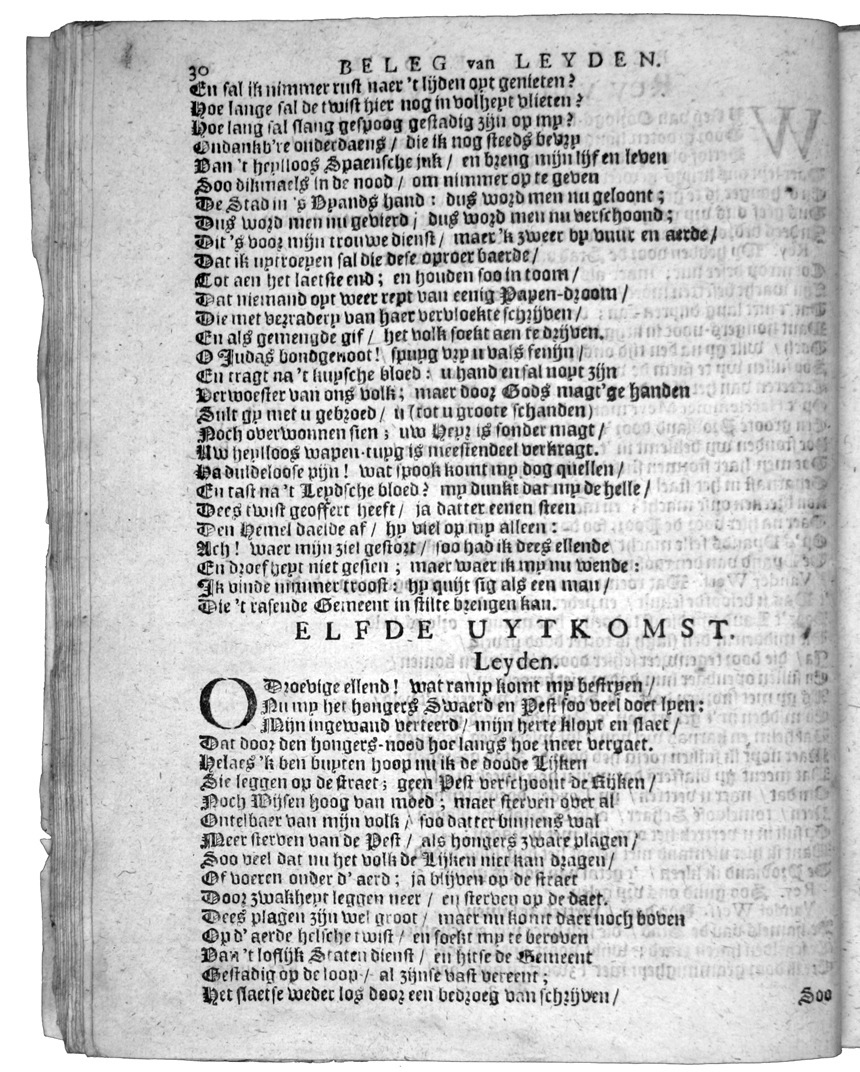 30 BELEG van LEYDEN.
En sal ik nimmer rust naer 't lijden oyt genieten?
Hoe lange sal de twist hier nog in volheyt vlieten?
Hoe lang sal slang gespoog gestadig zijn op my?
Ondankb're onderdaens / die ik nog steeds bevry
Van 't heylloos Spaensche juk / en breng mijn lijf en leven
Soo dikmaels in de nood / om nimmer op te geven
De Stad in 's Vyands hand: dus word men nu geloont;
Dus word men nu gevierd; dus word men nu verschoond;
Dit 's voor mijn trouwe dienst / maer 'k zweer by vuur en aerde /
Dat ik uytroeyen sal die dese oproer baerde /
Tot aen het laetste end; en houden soo in toom /
Dat niemand oyt weer rept van eenig Papen-droom /
Die met verradery van haer vervloekte schrijven /
En als gemengde gif / het volk soekt aen te drijven.
O Judas bondgenoot! spuyg vry u vals fenijn /
En tragt na 't kuysche bloed: u hand en sal noyt zijn
Verwoester van ons volk; maer door Gods magt'ge handen
Sult gy met u gebroed / u (tot u groote schanden)
Noch overwonnen sien; uw Heyr is sonder magt /
Uw heylloos wapen-tuyg is meestendeel verkragt.
Ha duldeloose pijn! wat spook komt my dog quellen /
En tast na 't Leydsche bloed? my dunkt dat my de helle /
Dees twist geoffert heeft / ja datter eenen steen
Den Hemel daelde af / hy viel op my alleen:
Ach! waer mijn ziel gestort / soo had ik dees ellende
En droefheyt niet gesien; maer waer ik my nu wende:
Ik vinde nimmer troost: hy quijt sig als een man /
Die 't rasende Gemeent in stilte brengen kan.
ELFDE UYTKOMST.
Leyden.
O Droevige ellend! wat ramp komt my bestryen /
Nu my het hongers Swaerd en Pest soo veel doet lyen:
Mijn ingewand verteerd / mijn herte klopt en slaet /
Dat door den hongers-nood hoe langs hoe meer vergaet.
Helaes 'k ben buyten hoop nu ik de doode Lijken
Sie leggen op de straet; geen Pest verschoont de Rijken /
Noch Wijsen hoog van moed; maer sterven over al
Ontelbaer van mijn volk / soo datter binnens wal
Meer sterven van de Pest / als hongers zware plagen /
Soo veel dat nu het volk de Lijken niet kan dragen /
Of voeren onder d' aerd; ja blijven op de straet
Door zwakheyt leggen neer / en sterven op de daet.
Dees plagen zijn wel groot / maer nu komt daer noch boven
Op d' aerde helsche twist / en soekt my te beroven
Van 't loflijk Staten dienst / en hitse de Gemeent
Gestadig op de loop / al zijnse vast vereent;
Het slaetse weder los door een bedroeg van schrijven /
Soo